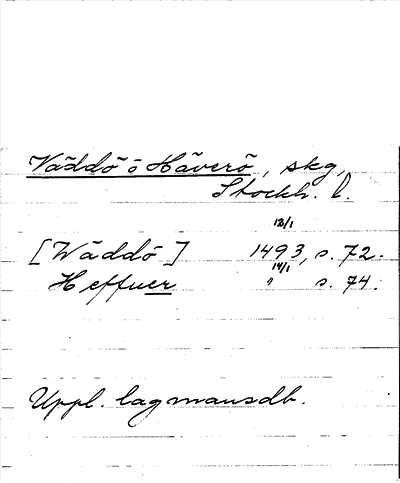 Väddö o Häverö, skg,
Stockh. l.
12/1
[Wäddö] 1493, s. 72.
14/1
Heffner " s. 74.
Uppl. lagmansdb.